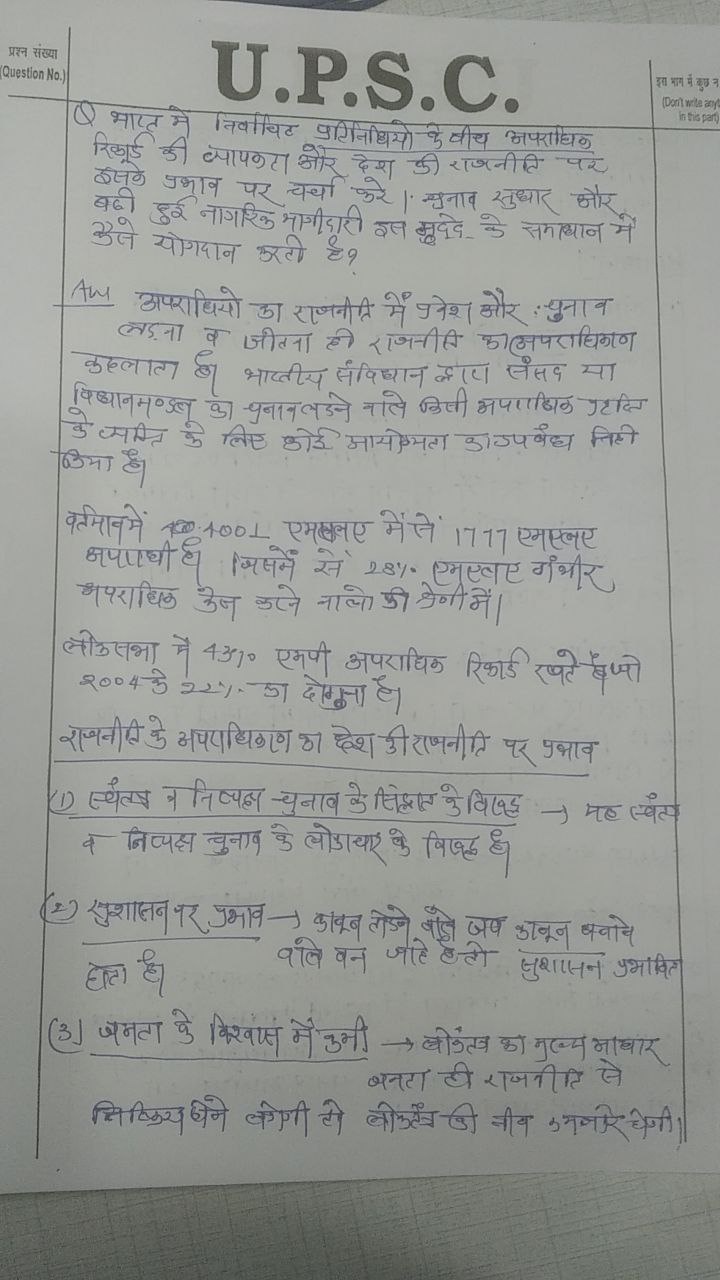 प्रश्न संख्या
(Question No.)
U.P.S.C.
इस भाग में कुछ न
(Don't write anyt
in this part)
Q भारत में निर्वाचित प्रतिनिधियो के बीच अपराधिक
रिकॉर्ड की व्यापकता और देश की राजनीति पर
इसके प्रभाव पर चर्चा करे। चुनाव सुधार और
बढी हुई नागरिक भागीदारी इस मुद्दे के समाधान में
कैसे योगदान करती है?
Ans अपराधियो का राजनीति में प्रवेश और चुनाव
लडना व जीतना ही राजनीति का अपराधिकरण
कहलाता है। भारतीय संविधान द्वारा संसद या
विधानमण्डल का चुनाव लडने वाले किसी अपराधिक प्रवृत्ति
के व्यक्ति के लिए कोई अयोग्यता का उपबंध नही
किया है।
वर्तमान में 4001 एमएलए में से 1777 एमएलए
अपराधी है। जिसमें से 28% एमएलए गंभीर
अपराधिक केस वाले की श्रेणी में।
लोकसभा में 43% एमपी अपराधिक रिकार्ड रखते है जो
2004 के 22% का दोगुना है।
राजनीति के अपराधिकरण का देश की राजनीति पर प्रभाव
(1) स्वतंत्र व निष्पक्ष चुनाव के सिद्धांत के विरुद्ध → यह स्वतंत्र
व निष्पक्ष चुनाव के लोकाचार के विरुद्ध है।
(2) सुशासन पर प्रभाव → कानून तोडने वाले जब कानून बनाने
वाले बन जाते है तो सुशासन प्रभावित
होता है।
(3) जनता के विश्वास में कमी → लोकतंत्र का मुख्य आधार
जनता ही राजनीति से
निष्क्रिय होने लगेगी तो लोकतंत्र की नीव कमजोर होगी।